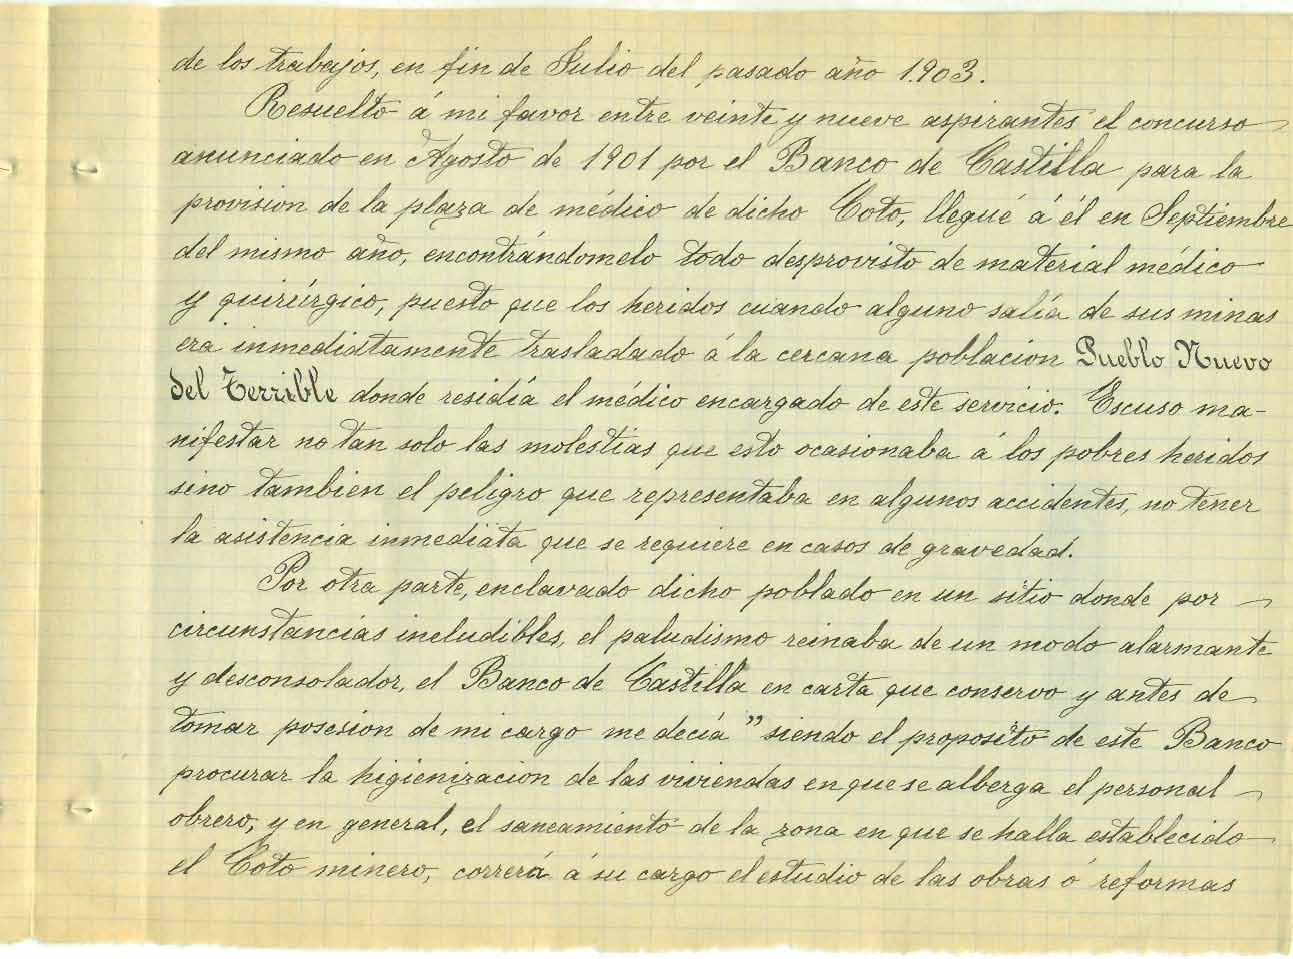 de los trabajos, en fin de Julio del pasado año 1.903.
Resuelto á mi favor entre veinte y nueve aspirantes el concurso
anunciado en Agosto de 1901 por el Banco de Castilla para la
provision de la plaza de médico de dicho Coto, llegué á él en Septiembre
del mismo año, encontrándomelo todo desprovisto de material médico
y quirúrgico, puesto que los heridos cuando alguno salía de sus minas
era inmediatamente trasladado á la cercana poblacion Pueblo Nuevo
del Terrible donde residía el médico encargado de este servicio. Escuso ma-
nifestar no tan solo las molestias que esto ocasionaba á los pobres heridos
sino tambien el peligro que representaba en algunos accidentes, no tener
la asistencia inmediata que se requiere en casos de gravedad.
Por otra parte, enclavado dicho poblado en un sitio donde por
circunstancias includibles, el paludismo reinaba de un modo alarmante
y desconsolador, el Banco de Castilla en carta que conservo y antes de
tomar posesion de mi cargo me decía " siendo el proposito de este Banco
procurar la higienizacion de las viviendas en que se alberga el personal
obrero, y en general, el saneamiento de la zona en que se halla establecido
el Coto minero, correrá á su cargo el estudio de las obras ó reformas